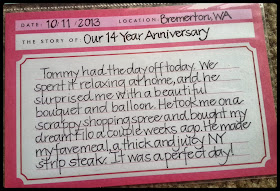 DATE: 10/11/2013 LOCATION: Bremerton, WA
THE STORY OF: Our 14 Year Anniversary
Tommy had the day off today. We
spent it relaxing at home, and he
surprised me with a beautiful
bouquet and balloon. He took me on a
scrappy shopping spree and bought my
dream Filo a couple weeks ago. He made
my fave meal, a thick and juicy NY
strip steak. It was a perfect day!